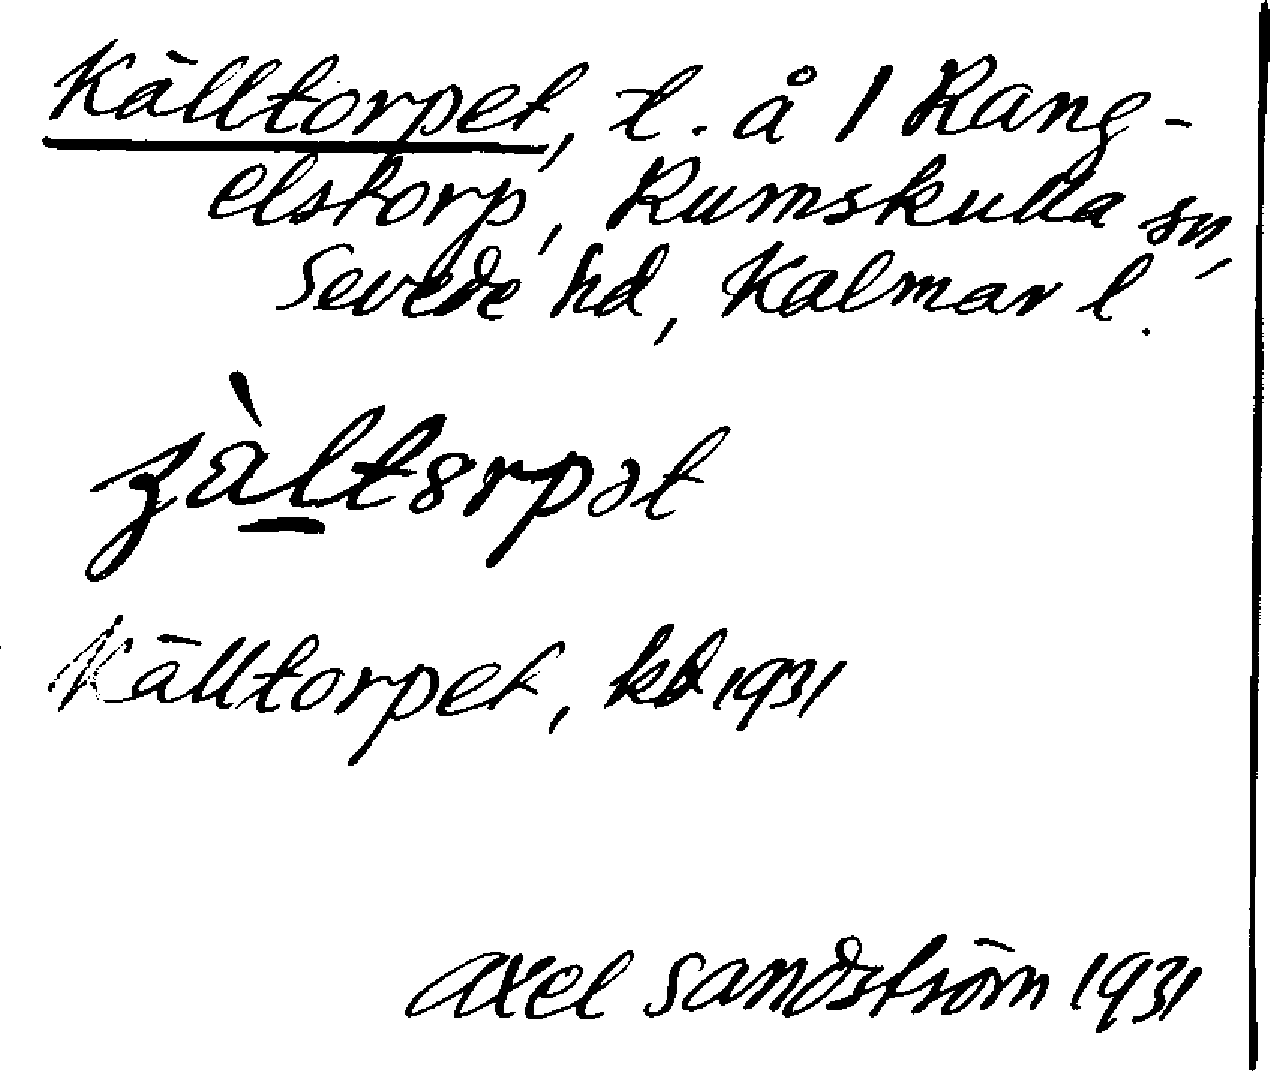 Källtorpet, t. å 1 Rang-
elstorp, Rumskulla sn,
Sevede hd, Kalmar l.
Källtorpet, kb 1931
Axel Sandström 1931